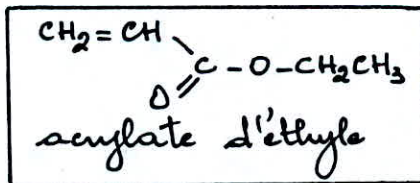 CH₂=CH
C-O-CH₂CH₃
O
acrylate d'éthyle